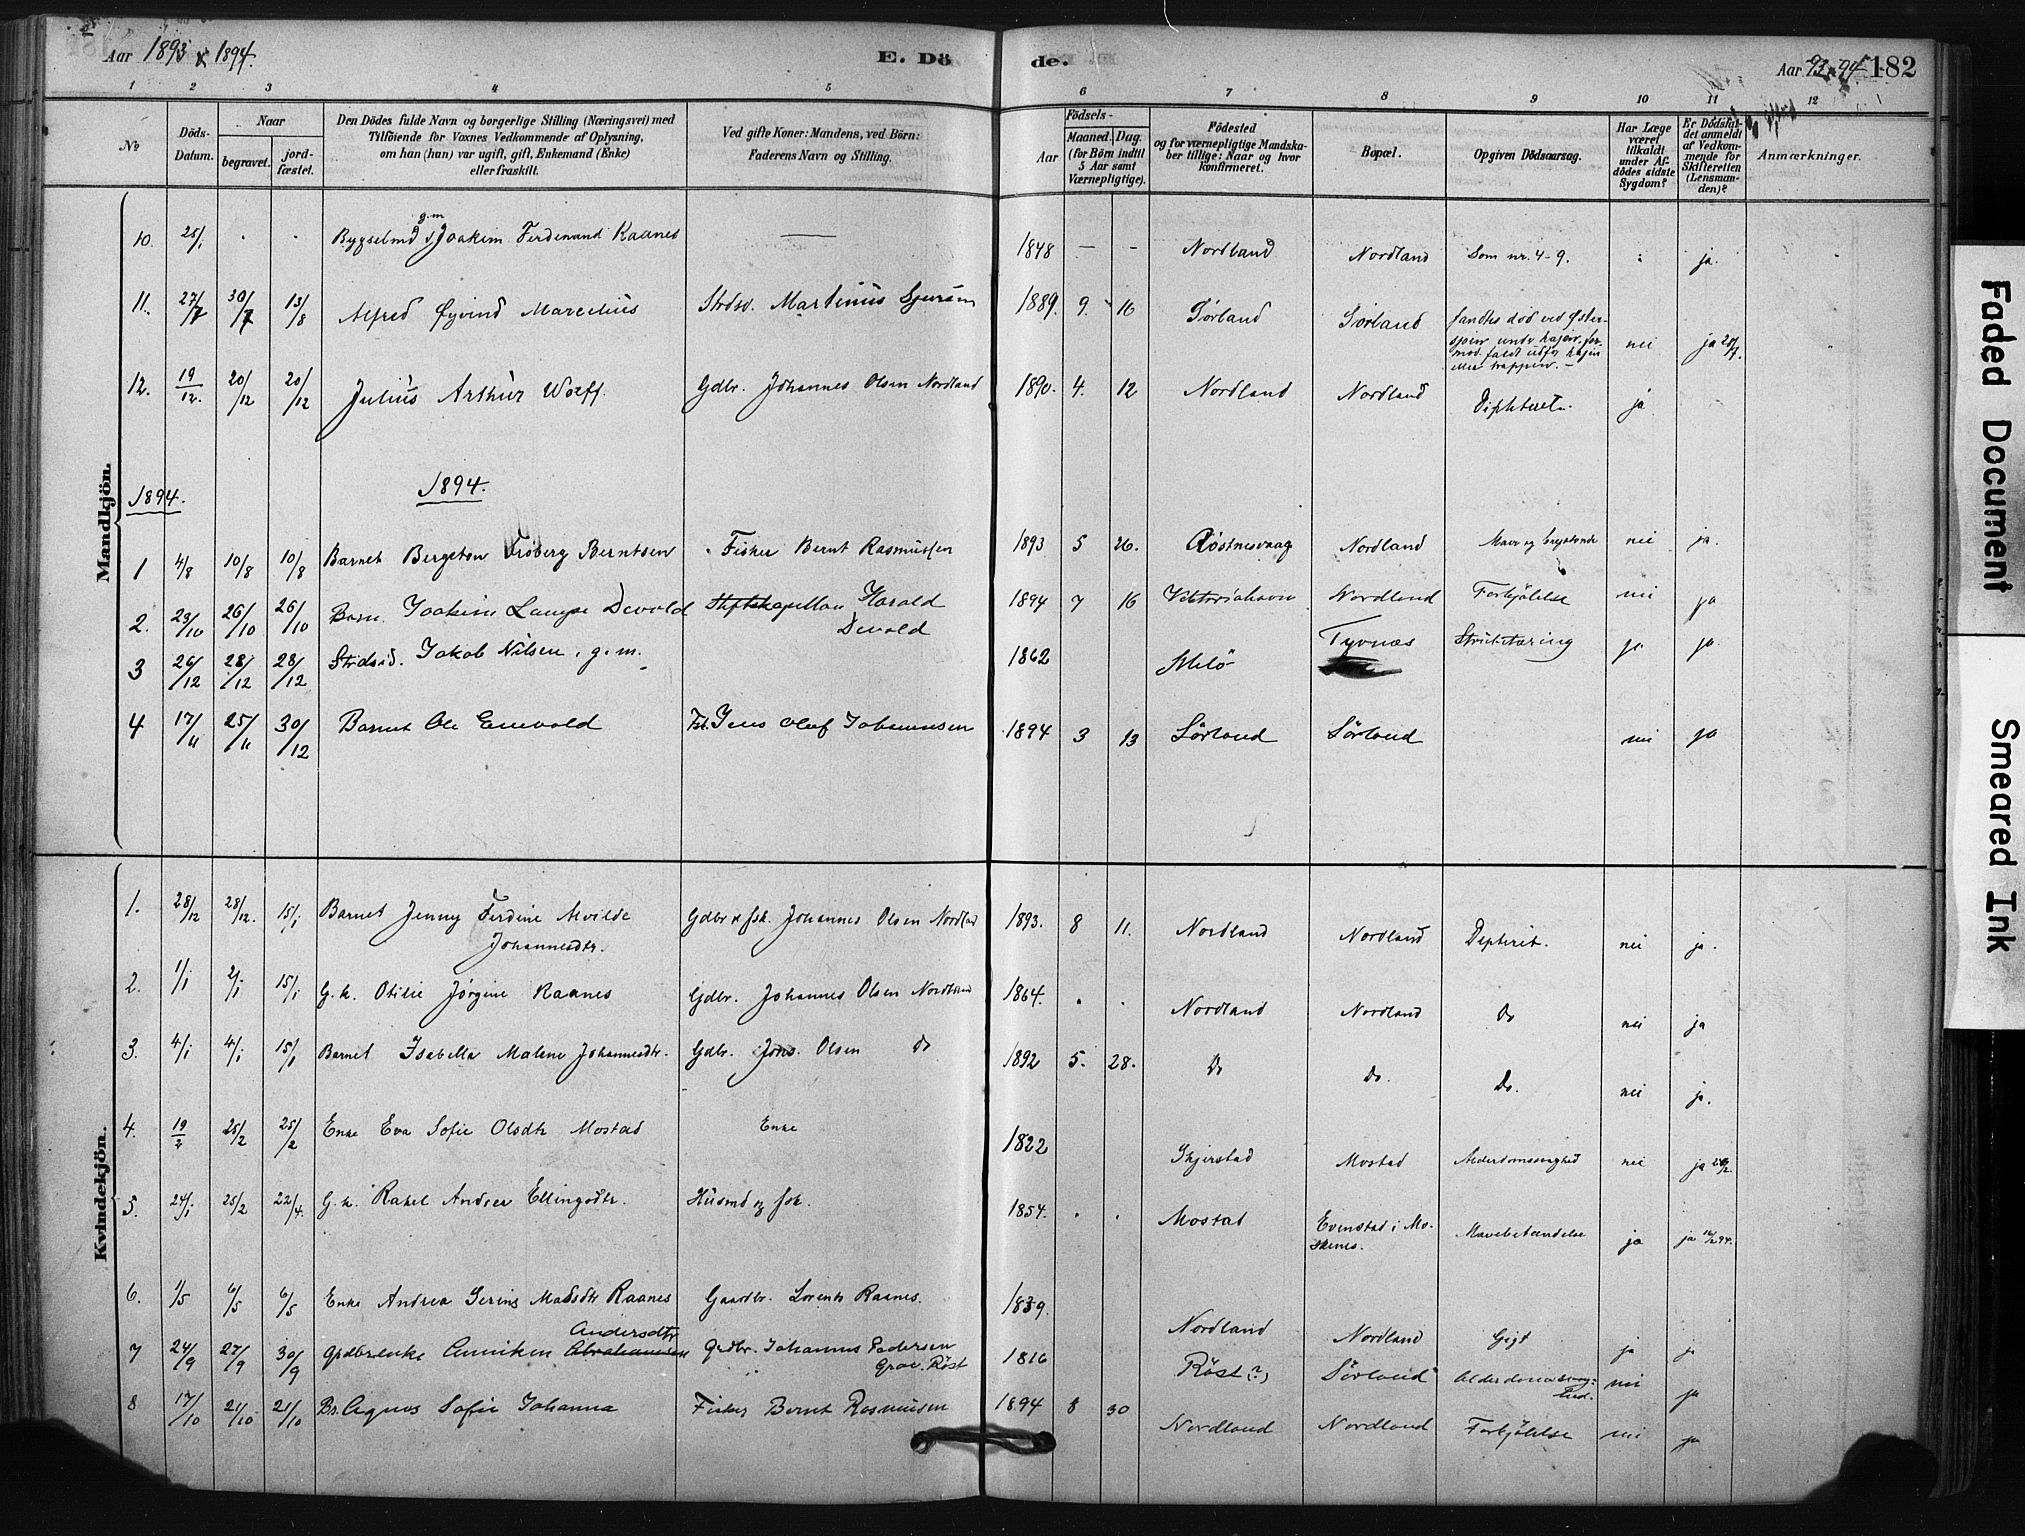 Aar 1893 & 1894.
E. Dö
de.
Aar 93 & 94 182
1 2 3 4 5 6 7 8 9 10 11 12
№
Döds-Datum.
Naar
begravet. jord-fæstet.
Den Dödes fulde Navn og borgerlige Stilling (Næringsvei) med
Tilföiende for Voxnes Vedkommende af Oplysning,
om han (hun) var ugift, gift, Enkemand (Enke)
eller fraskilt.
Ved gifte Koner: Mandens, ved Börn:
Faderens Navn og Stilling.
Födsels-
Aar Maaned. Dag.
(for Börn indtil
5 Aar samt
Værnepligtige).
Födested
og for værnepligtige Mandska-
ber tillige: Naar og hvor
konfirmeret.
Bopæl.
Opgiven Dödsaarsag.
Har Læge
været
tilkaldt
under Af-
dödes sidste
Sygdom?
Er Dödsfal-
det anmeldt
af Vedkom-
mende for
Skifteretten
(Lensman-
den)?
Anmærkninger.
Mandkjön.
10. 25/1 . . Bygselmd g.m Joakim Ferdenand Raanes — 1848 — - Nordland Nordland Som nr. 4-9. : ja.
11. 27/7 30/7 13/8 Alfred Øyvind Marcelius Strdsd. Martinius 1889. 9. 16 Sørland Sørland fandtes død ved nei ja 28/7.
12. 19/12. 20/12 20/12 Julius Arthur Wolff. Gdbr. Johannes Olsen Nordland 1890. 4. 12 Nordland Nordland Diphterit. ja
1894. 1894.
1 4/8 10/8 10/8 Barnet Bergeton Frøberg Berntsen Fisker Bernt Rasmussen 1893 5 26. Røstnesvaag Nordland nei ja.
2. 23/10 26/10 26/10 Barn. Joakim Lange Devold Stiftskapellan Harald Devold 1894 7 16 Nordland Forkjølelse nei ja
3 26/12 28/12 28/12 Strdsid. Jakob Nilsen, g.m. 1862 Melö Tyvnæs Strubetæring ja ja
4 17/11 25/11 30/12 Barnet Ole Enevold Fsk. Jens Olaf Johannesen 1894 3 13 Sørland Sørland nei ja
Kvindekjön.
1. 28/12 28/12. 15/1 Barnet Jenny Ferdine Alvilde Johannesdtr. Gdbr & fsk. Johannes Olsen Nordland 1893. 8 11. Nordland Nordland Dipterit. nei ja.
2. 1/1 2/1 15/1 G.k. Otilie Jørgine Raanes Gdbr. Johannes Olsen Nordland 1864. . . Nordland Nordland Do nei ja
3. 4/1 4/1 15/1 Barnet Isabella Malene Johannesdtr. Gdbr. Johs. Olsen do 1892 5. 28. Do Do. Do. nei ja.
4. 19/2 25/2 25/2 Enke Eva Sofie Olsdtr Mostad Enke 1822 Skjerstad Mostad Alderdomssvaghed nei ja
5. 24/1 25/2 22/4. G.k. Rakel Andrea Ellingsdtr. Husmd og fsk. 1854. . . Mostad Evenstad i Moskenes. Mavebetændelse ja ja 94.
6. 1/5 6/5 6/5 Enke Andrea Serine Madsdtr Raanes Gaardbr. Lorents Raanes. 1839. Nordland Nordland Gigt ja ja
7 24/9 27/9 30/9 Grdbrenke Anniken Abrahamsen Andersdtr Grdbr. Johannes Pedersen Grav. Röst 1816 Röst (?) Sörland Alderdomssvaghed. nei ja
8 17/10 21/10 21/10 Br. Agnes Sofie Johanna Fisker Bernt Rasmusen 1894 8 30 Nordland Nordland Forkjölelse nei ja
Faded Document
Smeared Ink